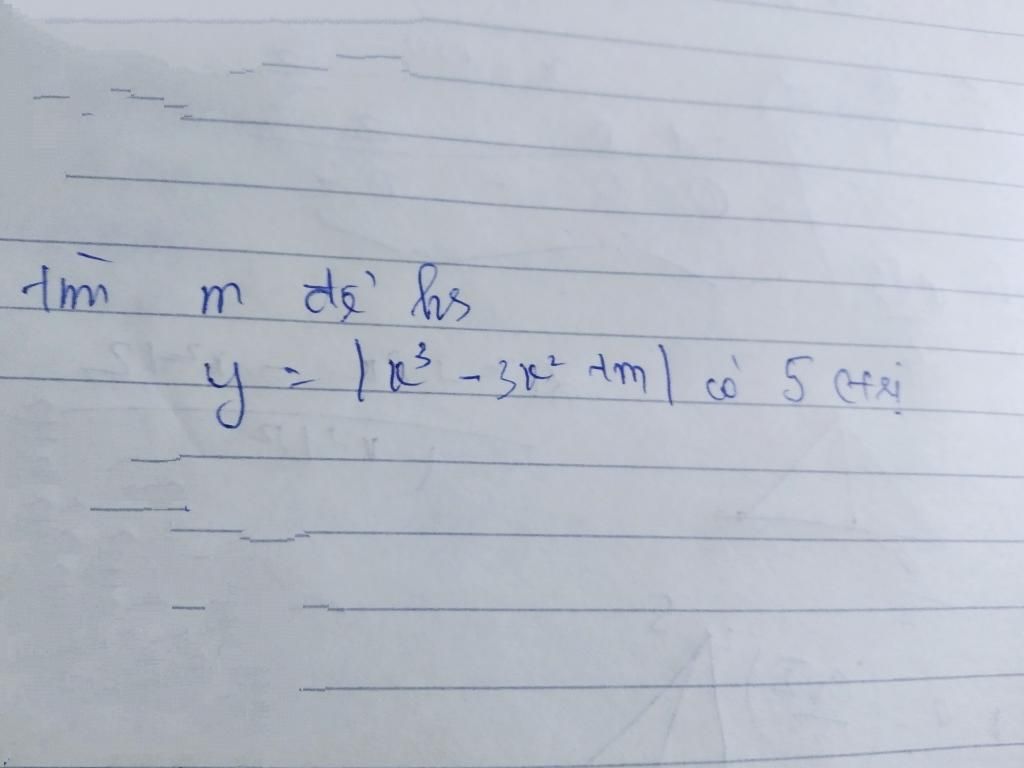 tìm m để hs
y = |x³ - 3x² + m| có 5 ctrị